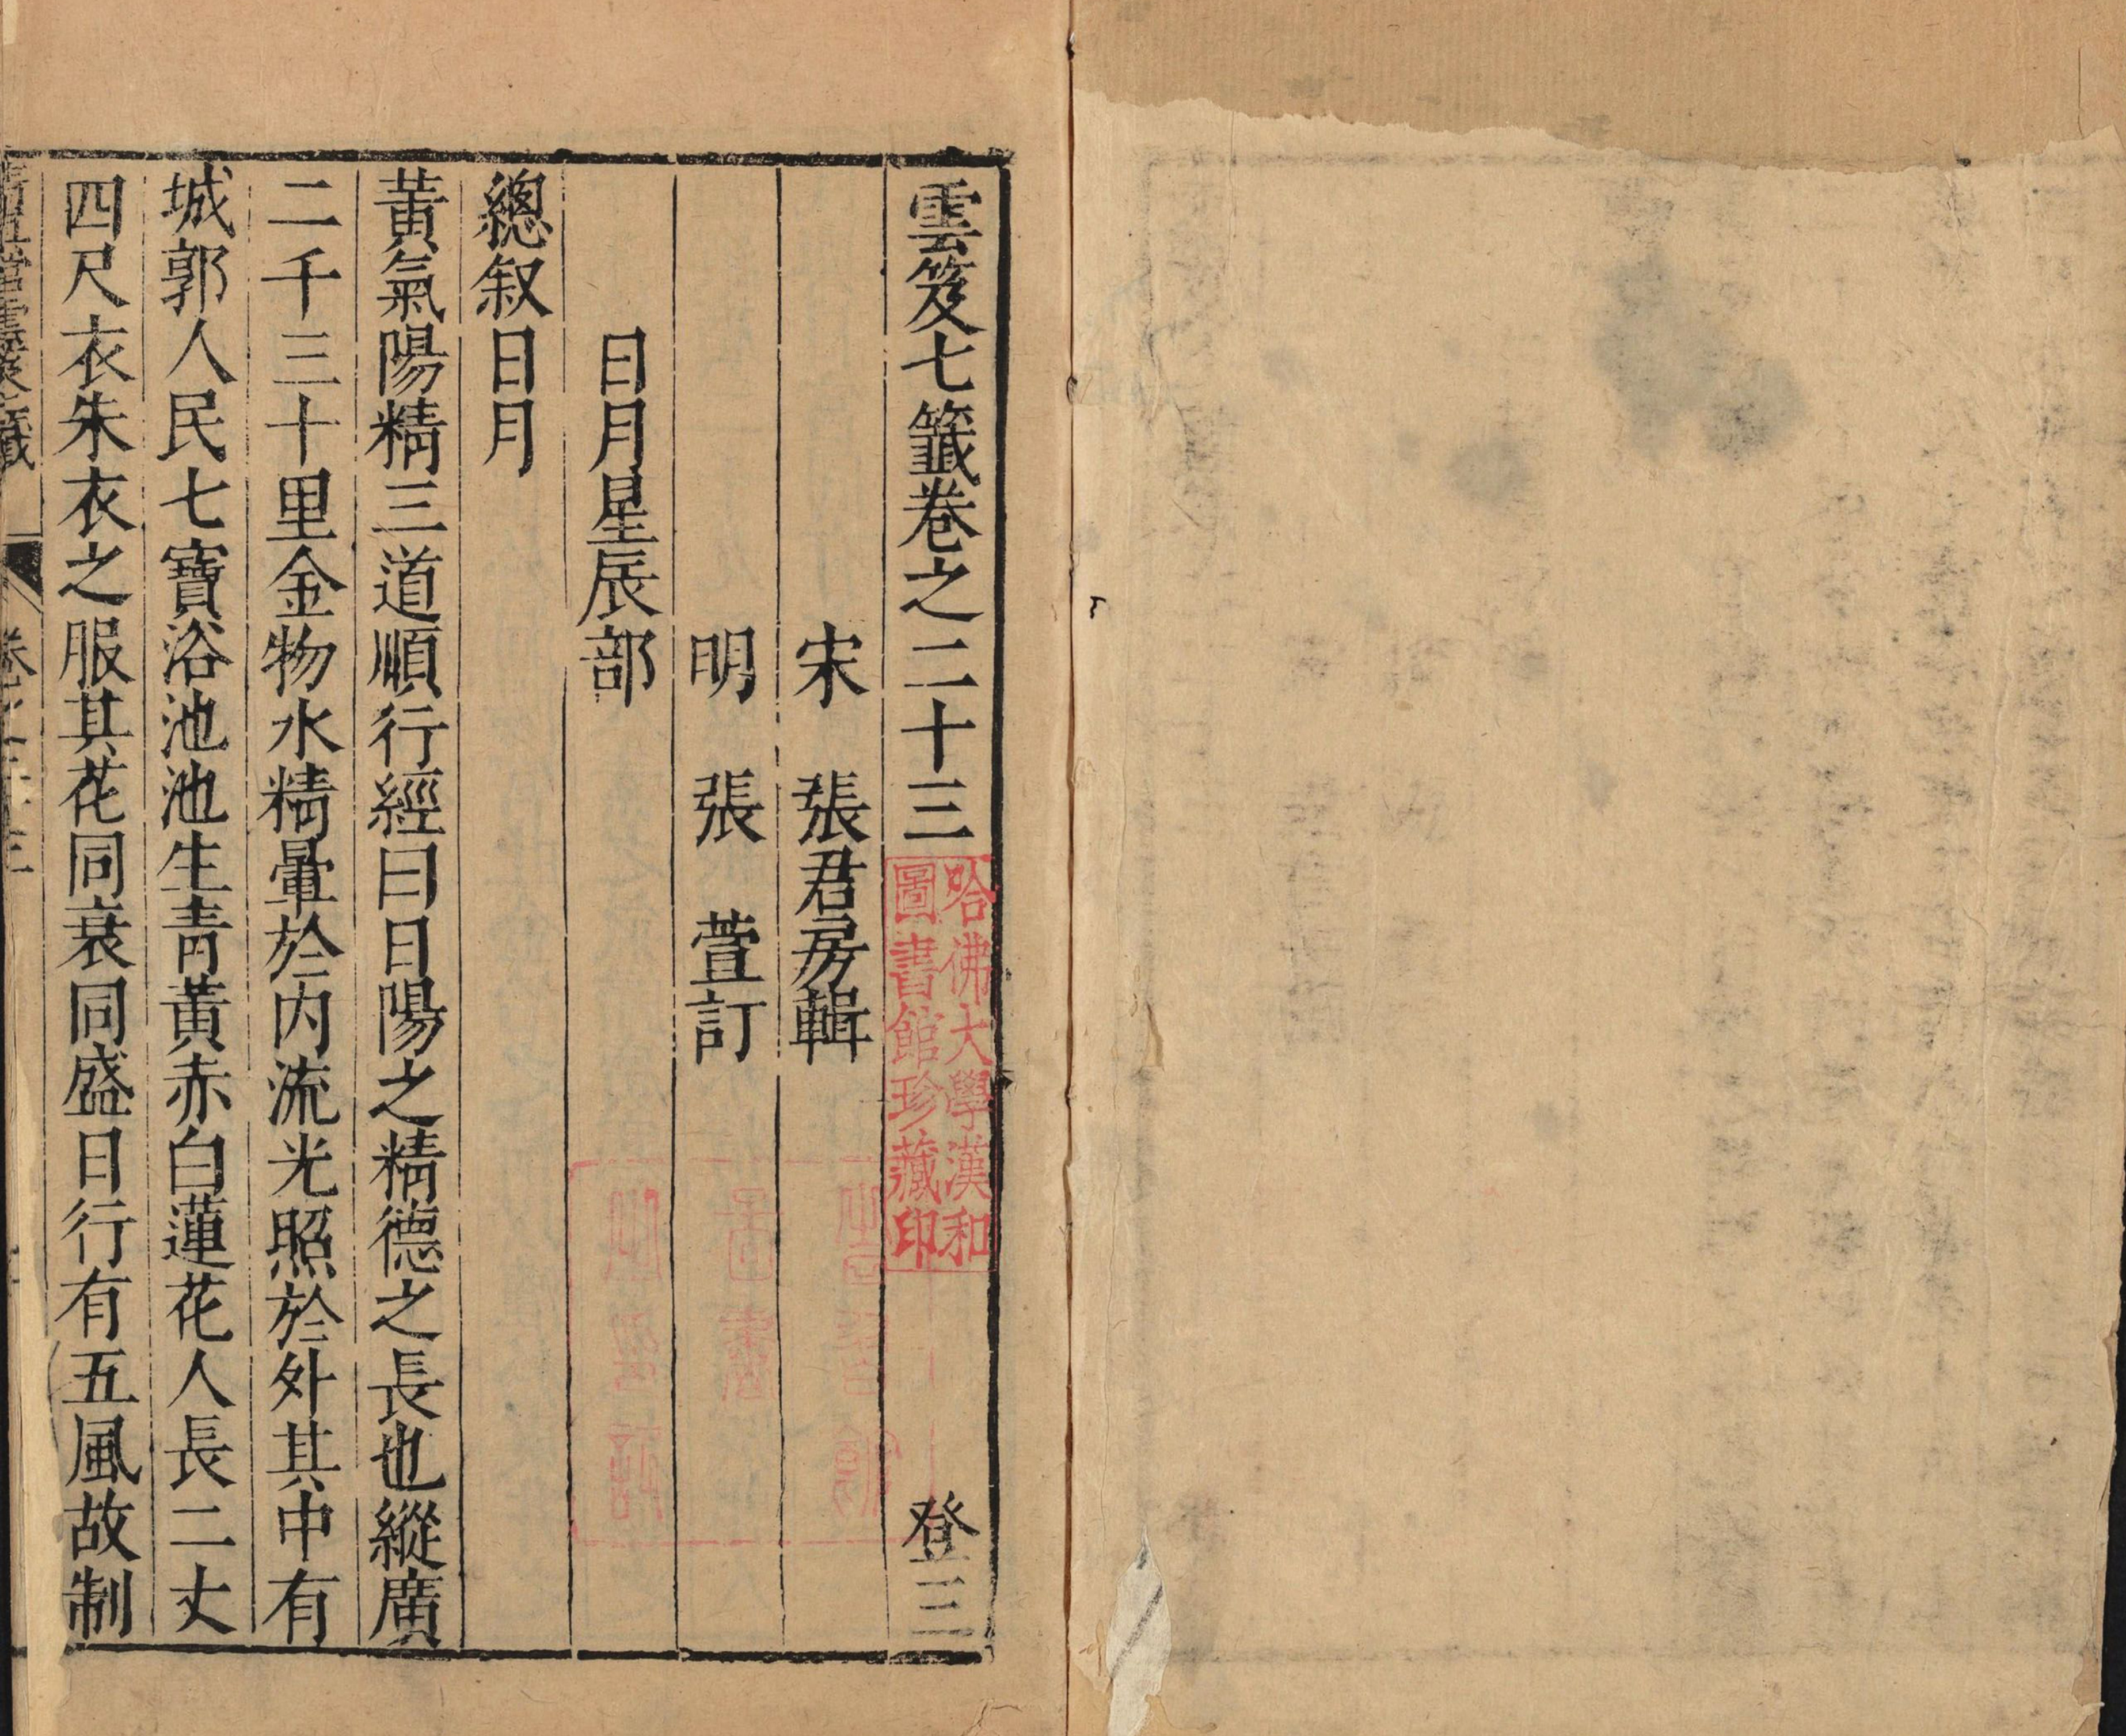 雲笈七籤卷之二十三 登三
哈佛大學漢和
圖書館珍藏印
宋 張君房輯
明 張 萱訂
日月星辰部
總叙日月
黃氣陽精三道順行經曰日陽之精德之長也縱廣
二千三十里金物水精暈於内流光照於外其中有
城郭人民七寶浴池池生青黃赤白蓮花人長二丈
四尺衣朱衣之服其花同衰同盛日行有五風故制